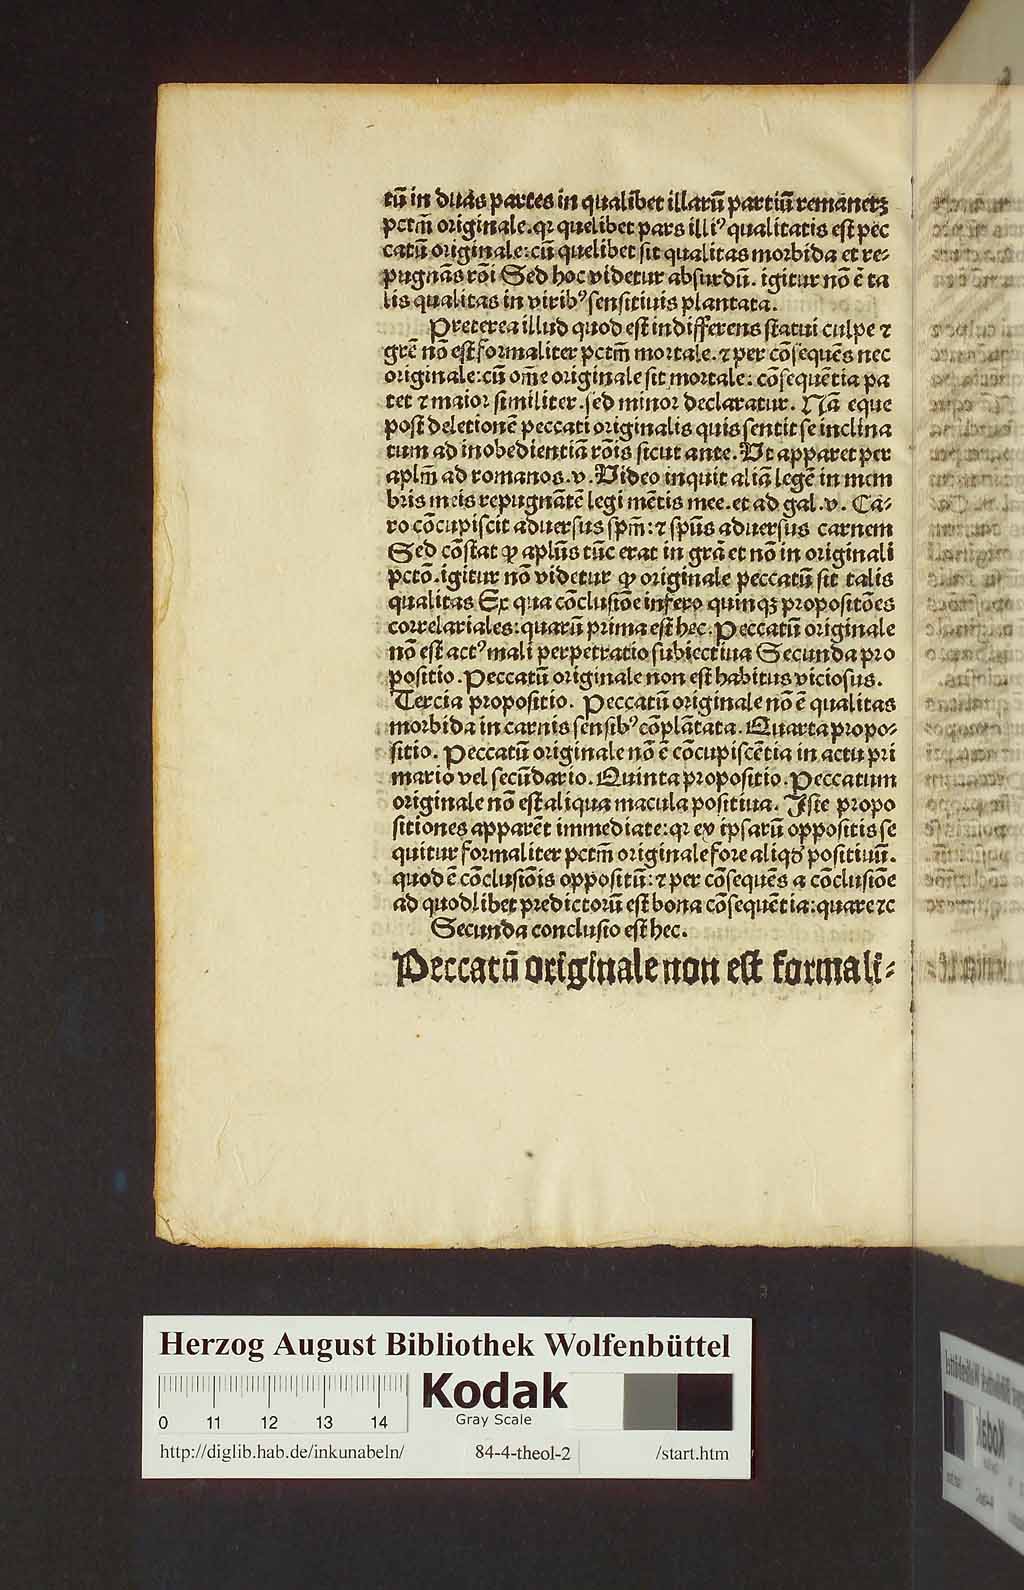 tū in duas partes in qualibet illarū partiū remanetꝫ
pctm̄ originale.qꝛ quelibet pars illiꝰ qualitatis est pec
catū originale:cū quelibet sit qualitas morbida et re⸗
pugnās rōi Sed hoc videtur absurdū. igitur nō ē ta
lis qualitas in viribꝰ sensitiuis plantata.
Preterea illud quod est indifferens statui culpe ⁊
grē nō est formaliter pctm̄ mortale.⁊ per cōsequēs nec
originale:cū om̄e originale sit mortale: cōsequētia pa
tet ⁊ maior similiter.sed minor declaratur. Nā eque
post deletionē peccati originalis quis sentit se inclina
tum ad inobedientiā rōis sicut ante. Vt apparet per
aplm̄ ad romanos.v. Video inquit aliā legē in mem
bris meis repugnātē legi mētis mee.et ad gal.v. Ca⸗
ro cōcupiscit aduersus spm̄:⁊ spūs aduersus carnem
Sed cōstat ꝙ aplūs tūc erat in grā et nō in originali
pctō.igitur nō videtur ꝙ originale peccatū sit talis
qualitas Ex qua cōclusiōe infero quinqꝫ propositōes
correlariales:quarū prima est hec. Peccatū originale
nō est actꝰ mali perpetratio subiectiua Secunda pro
positio. Peccatū originale non est habitus viciosus.
Tercia propositio. Peccatū originale nō ē qualitas
morbida in carnis sensibꝰ cōplātata. Quarta propo⸗
sitio. Peccatū originale nō ē cōcupiscētia in actu pri
mario vel secūdario. Quinta propositio. Peccatum
originale nō est aliqua macula positiua. Iste propo
sitiones apparēt immediate:qꝛ ex ipsarū oppositis se
quitur formaliter pctm̄ originale fore aliqd̄ positiuū.
quod ē cōclusiōis oppositū:⁊ per cōsequēs a cōclusiōe
ad quodlibet predictorū est bona cōsequētia:quare ⁊c
Secunda conclusio est hec.
Peccatū originale non est formali⸗
Herzog August Bibliothek Wolfenbüttel
0 11 12 13 14
Kodak
Gray Scale
http://diglib.hab.de/inkunabeln/ 84-4-theol-2 /start.htm